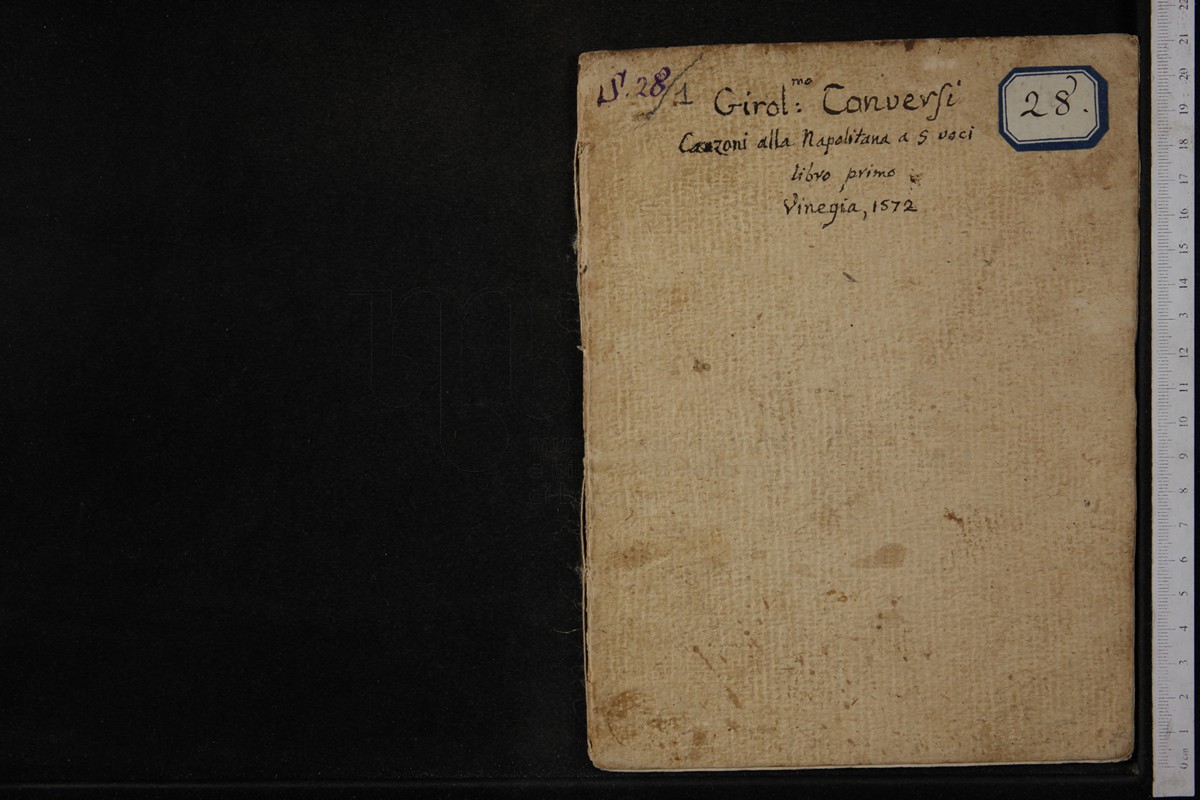 S. 28/1
28.
Girol:mo Conversi
Canzoni alla Napolitana a 5 voci
libro primo
Vinegia, 1572
22
21
20
19
18
17
16
15
14
3
12
11
10
9
8
7
6
5
4
3
2
1
0 cm